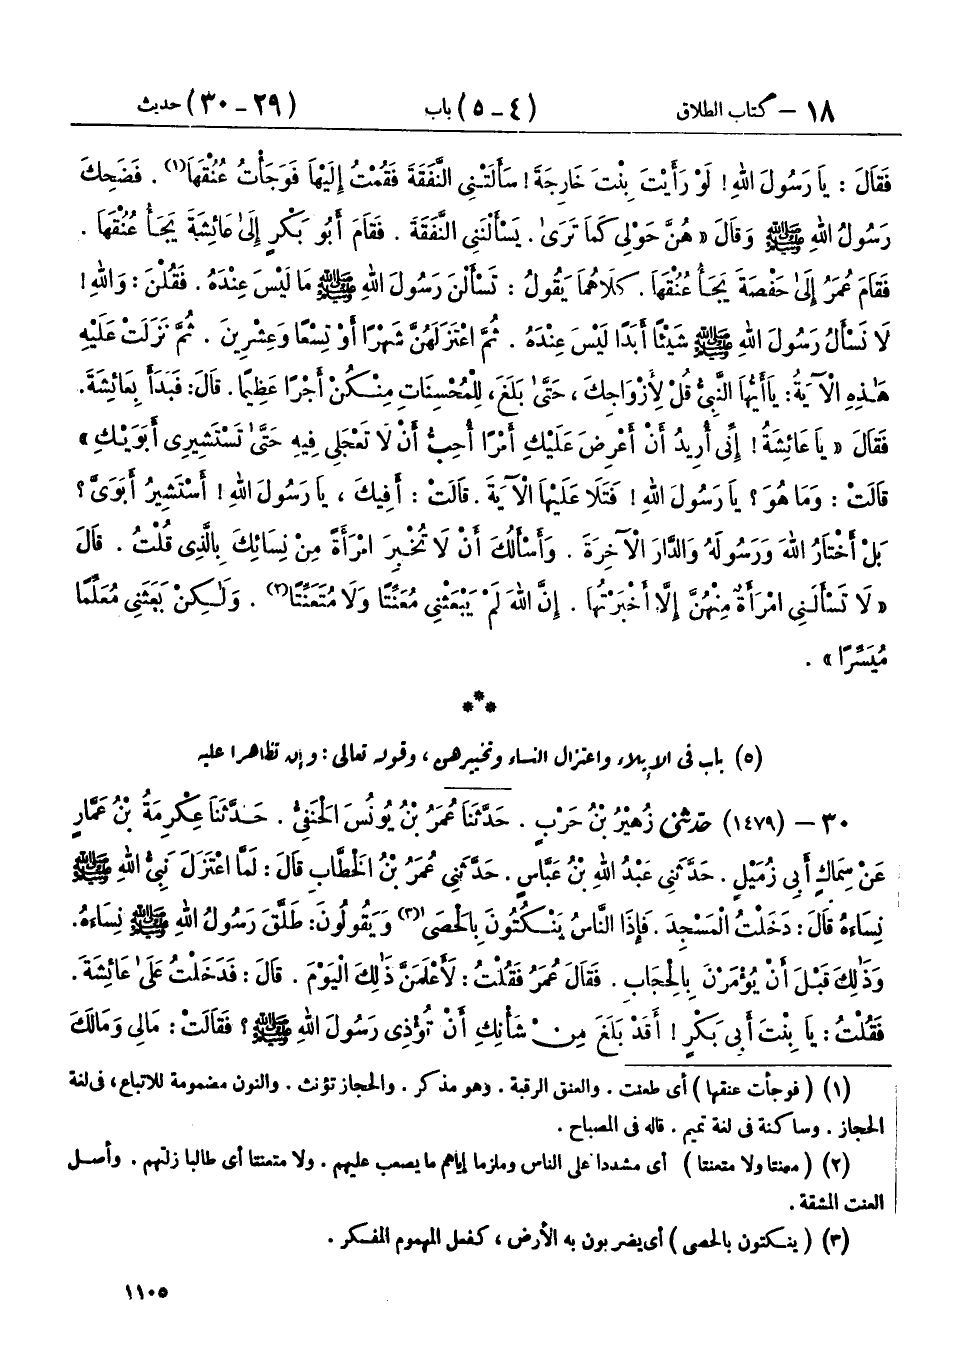 ١٨ – كتاب الطلاق (٤ – ٥) باب (٢٩ – ٣٠) حديث
فَقَالَ : يَا رَسُولَ اللهِ ! لَوْ رَأَيْتَ بِنْتَ خَارِجَةَ ! سَأَلَتْنِي النَّفَقَةَ فَقُمْتُ إِلَيْهَا فَوَجَأْتُ عُنُقَهَا(١) . فَضَحِكَ
رَسُولُ اللهِ ﷺ وَقَالَ « هُنَّ حَوْلِي كَمَا تَرَىٰ . يَسْأَلْنَنِي النَّفَقَةَ . فَقَامَ أَبُو بَكْرٍ إِلَىٰ عَائِشَةَ يَجَأُ عُنُقَهَا .
فَقَامَ عُمَرُ إِلَىٰ حَفْصَةَ يَجَأُ عُنُقَهَا . كِلَاهُمَا يَقُولُ : تَسْأَلْنَ رَسُولَ اللهِ ﷺ مَا لَيْسَ عِنْدَهُ . فَقُلْنَ : وَاللهِ !
لَا نَسْأَلُ رَسُولَ اللهِ ﷺ شَيْئًا أَبَدًا لَيْسَ عِنْدَهُ . ثُمَّ اعْتَزَلَهُنَّ شَهْرًا أَوْ تِسْعًا وَعِشْرِينَ . ثُمَّ نَزَلَتْ عَلَيْهِ
هَٰذِهِ الْآيَةُ : يَا أَيُّهَا النَّبِيُّ قُلْ لِأَزْوَاجِكَ ، حَتَّىٰ بَلَغَ ، لِلْمُحْسِنَاتِ مِنْكُنَّ أَجْرًا عَظِيمًا . قَالَ : فَبَدَأَ بِعَائِشَةَ .
فَقَالَ « يَا عَائِشَةُ ! إِنِّي أُرِيدُ أَنْ أَعْرِضَ عَلَيْكِ أَمْرًا أُحِبُّ أَنْ لَا تَعْجَلِي فِيهِ حَتَّىٰ تَسْتَشِيرِي أَبَوَيْكِ »
قَالَتْ : وَمَا هُوَ ؟ يَا رَسُولَ اللهِ ! فَتَلَا عَلَيْهَا الْآيَةَ . قَالَتْ : أَفِيكَ ، يَا رَسُولَ اللهِ ! أَسْتَشِيرُ أَبَوَيَّ ؟
بَلْ أَخْتَارُ اللهَ وَرَسُولَهُ وَالدَّارَ الْآخِرَةَ . وَأَسْأَلُكَ أَنْ لَا تُخْبِرَ امْرَأَةً مِنْ نِسَائِكَ بِالَّذِي قُلْتُ . قَالَ
« لَا تَسْأَلُنِي امْرَأَةٌ مِنْهُنَّ إِلَّا أَخْبَرْتُهَا . إِنَّ اللهَ لَمْ يَبْعَثْنِي مُعَنِّتًا وَلَا مُتَعَنِّتًا(٢) . وَلَٰكِنْ بَعَثَنِي مُعَلِّمًا
مُيَسِّرًا » .
***
(٥) باب فى الإيلاء واعتزال النساء وتخييرهن ، وقوله تعالى : وإن تظاهرا عليه
٣٠ – (١٤٧٩) حَدَّثَنِي زُهَيْرُ بْنُ حَرْبٍ . حَدَّثَنَا عُمَرُ بْنُ يُونُسَ الْحَنَفِيُّ . حَدَّثَنَا عِكْرِمَةُ بْنُ عَمَّارٍ
عَنْ سِمَاكٍ أَبِي زُمَيْلٍ . حَدَّثَنِي عَبْدُ اللهِ بْنُ عَبَّاسٍ . حَدَّثَنِي عُمَرُ بْنُ الْخَطَّابِ قَالَ : لَمَّا اعْتَزَلَ نَبِيُّ اللهِ ﷺ
نِسَاءَهُ قَالَ : دَخَلْتُ الْمَسْجِدَ . فَإِذَا النَّاسُ يَنْكُتُونَ بِالْحَصَىٰ(٣) وَيَقُولُونَ : طَلَّقَ رَسُولُ اللهِ ﷺ نِسَاءَهُ .
وَذَٰلِكَ قَبْلَ أَنْ يُؤْمَرْنَ بِالْحِجَابِ . فَقَالَ عُمَرُ فَقُلْتُ : لَأَعْلَمَنَّ ذَٰلِكَ الْيَوْمَ . قَالَ : فَدَخَلْتُ عَلَىٰ عَائِشَةَ .
فَقُلْتُ : يَا بِنْتَ أَبِي بَكْرٍ ! أَقَدْ بَلَغَ مِنْ شَأْنِكِ أَنْ تُؤْذِي رَسُولَ اللهِ ﷺ ؟ فَقَالَتْ : مَالِي وَمَالَكَ
(١) ( فوجأت عنقها ) أى طعنت . والعنق الرقبة . وهو مذكر . والحجاز تؤنث . والنون مضمومة للاتباع ، فى لغة
الحجاز . وساكنة فى لغة تميم . قاله فى المصباح .
(٢) ( معنتا ولا متعنتا ) أى مشددا على الناس وملزما إياهم ما يصعب عليهم . ولا متعنتا أى طالبا زلتهم . وأصل
العنت المشقة .
(٣) ( ينكتون بالحصى ) أى يضربون به الأرض ، كفعل المهموم المفكر .
١١٠٥